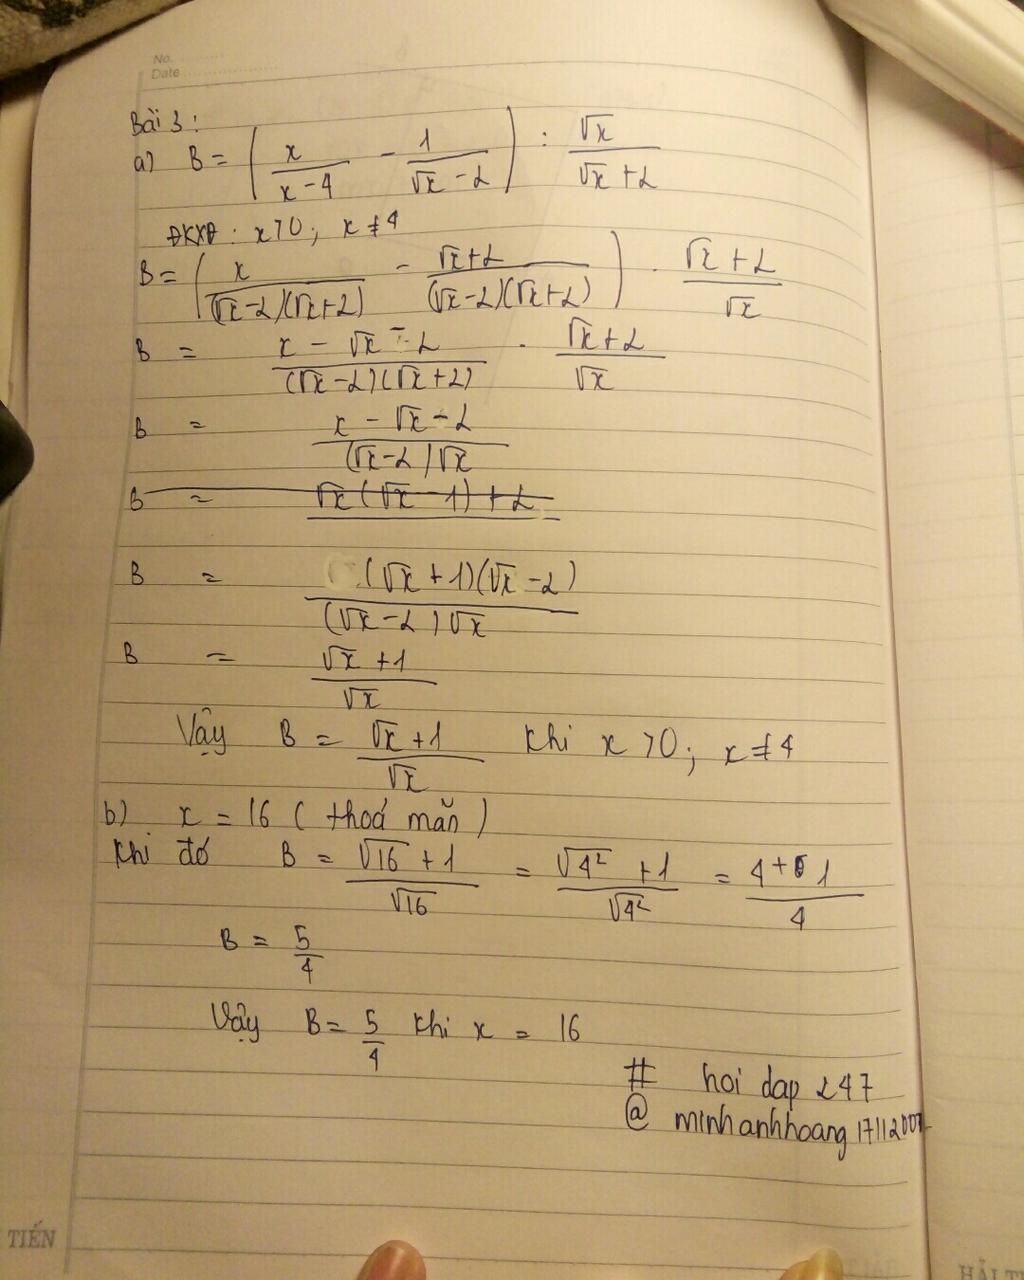 No.
Date
Bài 3:
a) B = (x/(x-4) - 1/(√x-2)) : √x/(√x+2)
ĐKXĐ: x>0; x≠4
B = (x/((√x-2)(√x+2)) - (√x+2)/((√x-2)(√x+2))) . (√x+2)/√x
B = (x-√x-2)/((√x-2)(√x+2)) . (√x+2)/√x
B = (x-√x-2)/((√x-2)√x)
B = √x(√x-1)+2
B = ((√x+1)(√x-2))/((√x-2)√x)
B = (√x+1)/√x
Vậy B = (√x+1)/√x khi x>0; x≠4
b) x = 16 (thoả mãn)
Khi đó B = (√16+1)/√16 = (√4²+1)/√4² = (4+1)/4
B = 5/4
Vậy B = 5/4 khi x = 16
# hoi dap 247
@ minhanhhoang17112007
TIẾN